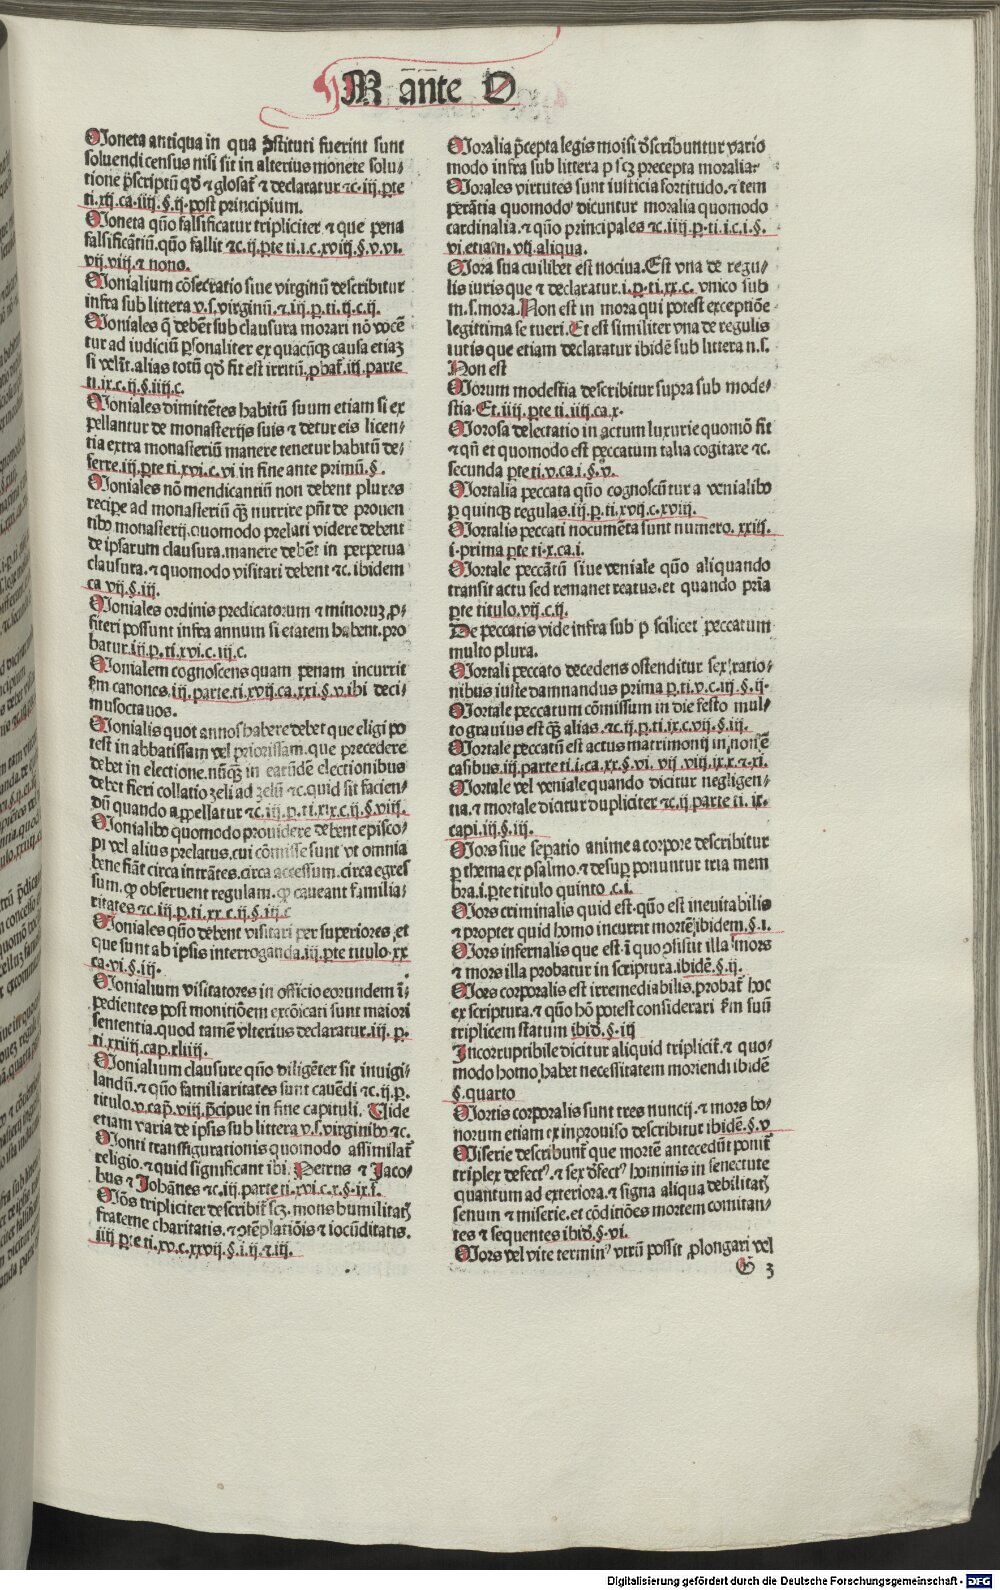 M ān̄te O
Moneta antiqua in qua ꝯstituti fuerint sunt
soluendi census nisi sit in alterius monete solu⸗
tione p̄scriptū qđ ⁊ glosat᷑ ⁊ declaratur ⁊c. iij. ꝑte
ti. xij. ca. iiij. §. ij. post principium.
Moneta qūo falsificatur tripliciter ⁊ que pena
falsificātiū. quo fallit ⁊c. ij. ꝑte ti. i. c. xviij. §. v. vi.
vij. viij. ⁊ nono.
Monialium cōsecratio siue virginū describitur
infra sub littera v. s. virginū. ⁊ iij. p. ti. ij. c. ij.
Moniales q̄ debēt sub clausura morari nō vocē
tur ad iudiciū ꝑsonaliter ex quacūqꝫ causa etiaꝫ
si velīt. alias totū qđ fit est irritū. ꝓbat᷑. iij. parte
ti. ix. c. ij. §. iiij. c.
Moniales dimittētes habitū suum etiam si ex
pellantur de monasterijs suis ⁊ detur eis licen⸗
tia extra monasteriū manere tenetur habitū de⸗
ferre. iij. ꝑte ti. xvi. c. vi in fine ante primū. §.
Moniales nō mendicantiū non debent plures
recipe ad monasteriū qꝫ nutrire pn̄t de prouen
tibꝰ monasterij. cuomodo prelati videre debent
de ipsarum clausura. manere debēt in perpetua
clausura. ⁊ quomodo visitari debent ⁊c. ibidem
ca. vij. §. iij.
Moniales ordinis predicatorum ⁊ minoruꝫ ꝓ⸗
fiteri possunt infra annum si etatem habent. pro
batur. iij. p. ti. xvi. c. iij. c.
Monialem cognoscens quam penam incurrit
ẜm canones. iij. parte. ti. xvij. ca. xxi. §. v. ibi deci⸗
musoctauos.
Monialis quot annos habere debet que eligi po
test in abbatissam vel priorissam. que precedere
debet in electione. nūqꝫ in earūdē electionibus
debet fieri collatio zeli ad zelū ⁊c. quid sit facien⸗
dū quando appellatur ⁊c. iij. p. ti. xix. c. ij. §. viij.
Monialibꝰ quomodo prouidere debent episco⸗
pi vel alius prelatus. cui cōmisse sunt vt omnia
bene fiāt circa intrātes. circa accessum. circa egres
sum. ꝙ obseruent regulam. ꝙ caueant familia⸗
ritates ⁊c. iij. p. ti. xx. c. ij. §. iij. c
Moniales qūo debent visitari per superiores. et
que sunt ab ipsis interroganda. iij. ꝑte titulo. xx
ca. vi. §. iij.
Monialium visitatores in officio eorundem ī⸗
pedientes post monitiōem excōicati sunt maiori
sententia. quod tamē vlterius declaratur. iij. p.
ti. xxiiij. cap. xliiij.
Monialium clausure qūo diligēter sit inuigi⸗
landū. ⁊ qūo familiaritates sunt cauēdi ⁊c. ij. p.
titulo. v. cap̄. viij. p̄cipue in fine capituli. Vide
etiam varia de ipsis sub littera v. s. virginibꝰ ⁊c.
Monti transfigurationis quomodo assimilat᷑
religio. ⁊ quid significant ibi. Petrus ⁊ Jaco⸗
bus ⁊ Johānes ⁊c. iij. parte ti. xvi. c. x. §. ix. f.
Mōs tripliciter describit᷑ scꝫ. mons humilitatꝭ
fraterne charitatis. ⁊ ꝯtēplatiōis ⁊ iocūditatis.
iiij ꝑte ti. xv. c. xxvij. §. i. ij. ⁊ iij.
Moralia p̄cepta legis moisi d̄scribuntur vario
modo infra sub littera p scꝫ precepta moralia⸗
Morales virtutes sunt iusticia fortitudo. ⁊ tem
perātia quomodo dicuntur moralia quomodo
cardinalia. ⁊ qūo principales ⁊c. iiij. p. ti. i. c. i. §.
vi. etiam. vij. aliqua.
Mora sua cuilibet est nociua. Est vna de regu⸗
lis iuris que ⁊ declaratur. i. p. ti. xx. c. vnico sub
m. s. mora. Non est in mora qui potest exceptiōe
legittima se tueri. Et est similiter vna de regulis
iutis que etiam declaratur ibidē sub littera n. s.
Non est
Morum modestia describitur supra sub mode⸗
stia. Et. iiij. ꝑte ti. iiij. ca. x.
Morosa delectatio in actum luxurie quomō fit
⁊ qn̄ et quomodo est peccatum talia cogitare ⁊c.
secunda ꝑte ti. v. ca. i. §. v.
Mortalia peccata qūo cognoscūtur a venialibꝰ
ꝑ quinqꝫ regulas. iij. p. ti. xvij. c. xviij.
Mortalis peccati nocumēta sunt numero. xxiij.
i. prima ꝑte ti. x. ca. i.
Mortale peccātū siue veniale qūo aliquando
transit actu sed remanet reatus. et quando prīa
ꝑte titulo. vij. c. ij.
De peccatis vide infra sub p scilicet peccatum
multo plura.
Mortali peccato decedens ostenditur sex ratio⸗
nibus iuste damnandus prima p. ti. v. c. iij. §. ij.
Mortale peccatum cōmissum in die festo mul⸗
to grauius est qꝫ alias. ⁊c. ij. p. ti. ix. c. vij. §. iij.
Mortale peccatū est actus matrimonij in nouē
casibus. iij. parte ti. i. ca. xx. §. vi. vij. viij. ix. x. ⁊. xi.
Mortale vel veniale quando dicitur negligen⸗
tia. ⁊ mortale dicitur dupliciter ⁊c. ij parte ti. ix.
capi. iij. §. iij.
Mors siue seꝑatio anime a corpore describitur
ꝑ thema ex psalmo. ⁊ desuꝑ ponuntur tria mem
bra. i. ꝑte titulo quinto. c. i.
Mors criminalis quid est. qūo est ineuitabilis
⁊ propter quid homo incurrit mortē ibidem. §. i.
Mors infernalis que est. ī quo ꝯsistit illa mors
⁊ mors illa probatur in scriptura. ibidē. §. ij.
Mors corporalis est irremediabilis. probat᷑ hoc
ex scriptura. ⁊ qūo hō potest considerari ẜm suū
triplicem statum ibiđ. §. iij
Incorruptibile dicitur aliquid triplicit᷑. ⁊ quo⸗
modo homo habet necessitatem moriendi ibidē
§. quarto
Mortis corporalis sunt tres nuncij. ⁊ mors bo⸗
norum etiam ex inprouiso describitur ibidē. §. v
Miserie describunt᷑ que mortē antecedūt ponit᷑
triplex defectꝰ. ⁊ sex d̄fectꝰ hominis in senectute
quantum ad exteriora. ⁊ signa aliqua debilitatꝭ
senum ⁊ miserie. et cōditiōes mortem comitan⸗
tes ⁊ sequentes ibiđ. §. vi.
Mors vel vite terminꝰ vtrū possit ꝓlongari vel
G 3
Digitalisierung gefördert durch die Deutsche Forschungsgemeinschaft - DFG